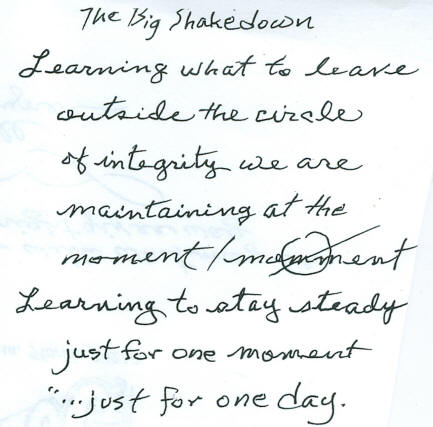 The Big Shakedown
Learning what to leave
outside the circle
of integrity we are
maintaining at the
moment/momment
Learning to stay steady
just for one moment
"...just for one day.